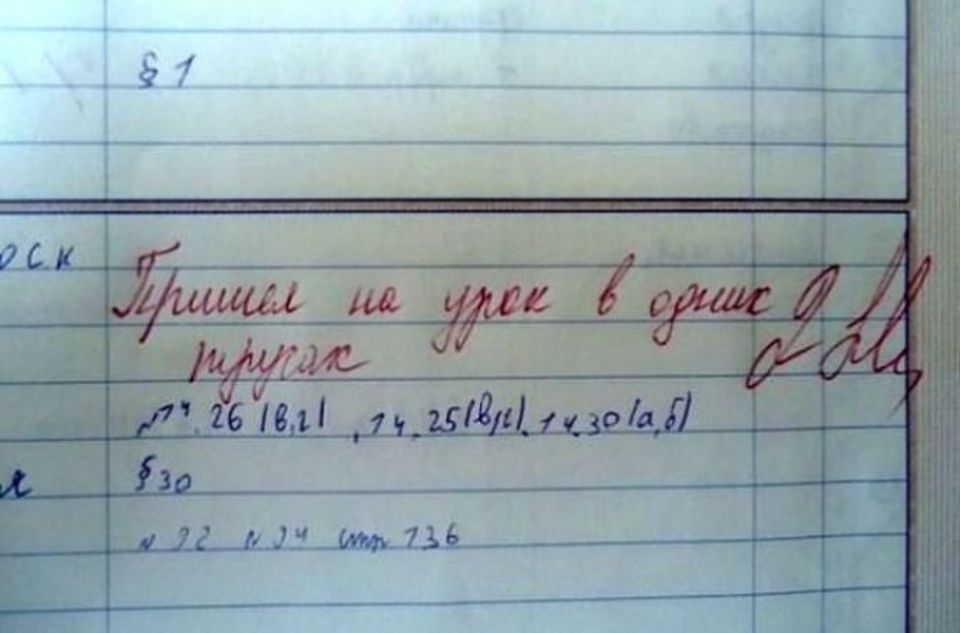 § 1
оск
Пришел на урок в одних 2
трусах
№14.26 (в,г), 14.25(в,г), 14.30(а,б)
я
§ 30
N 92 N 94 стр 136